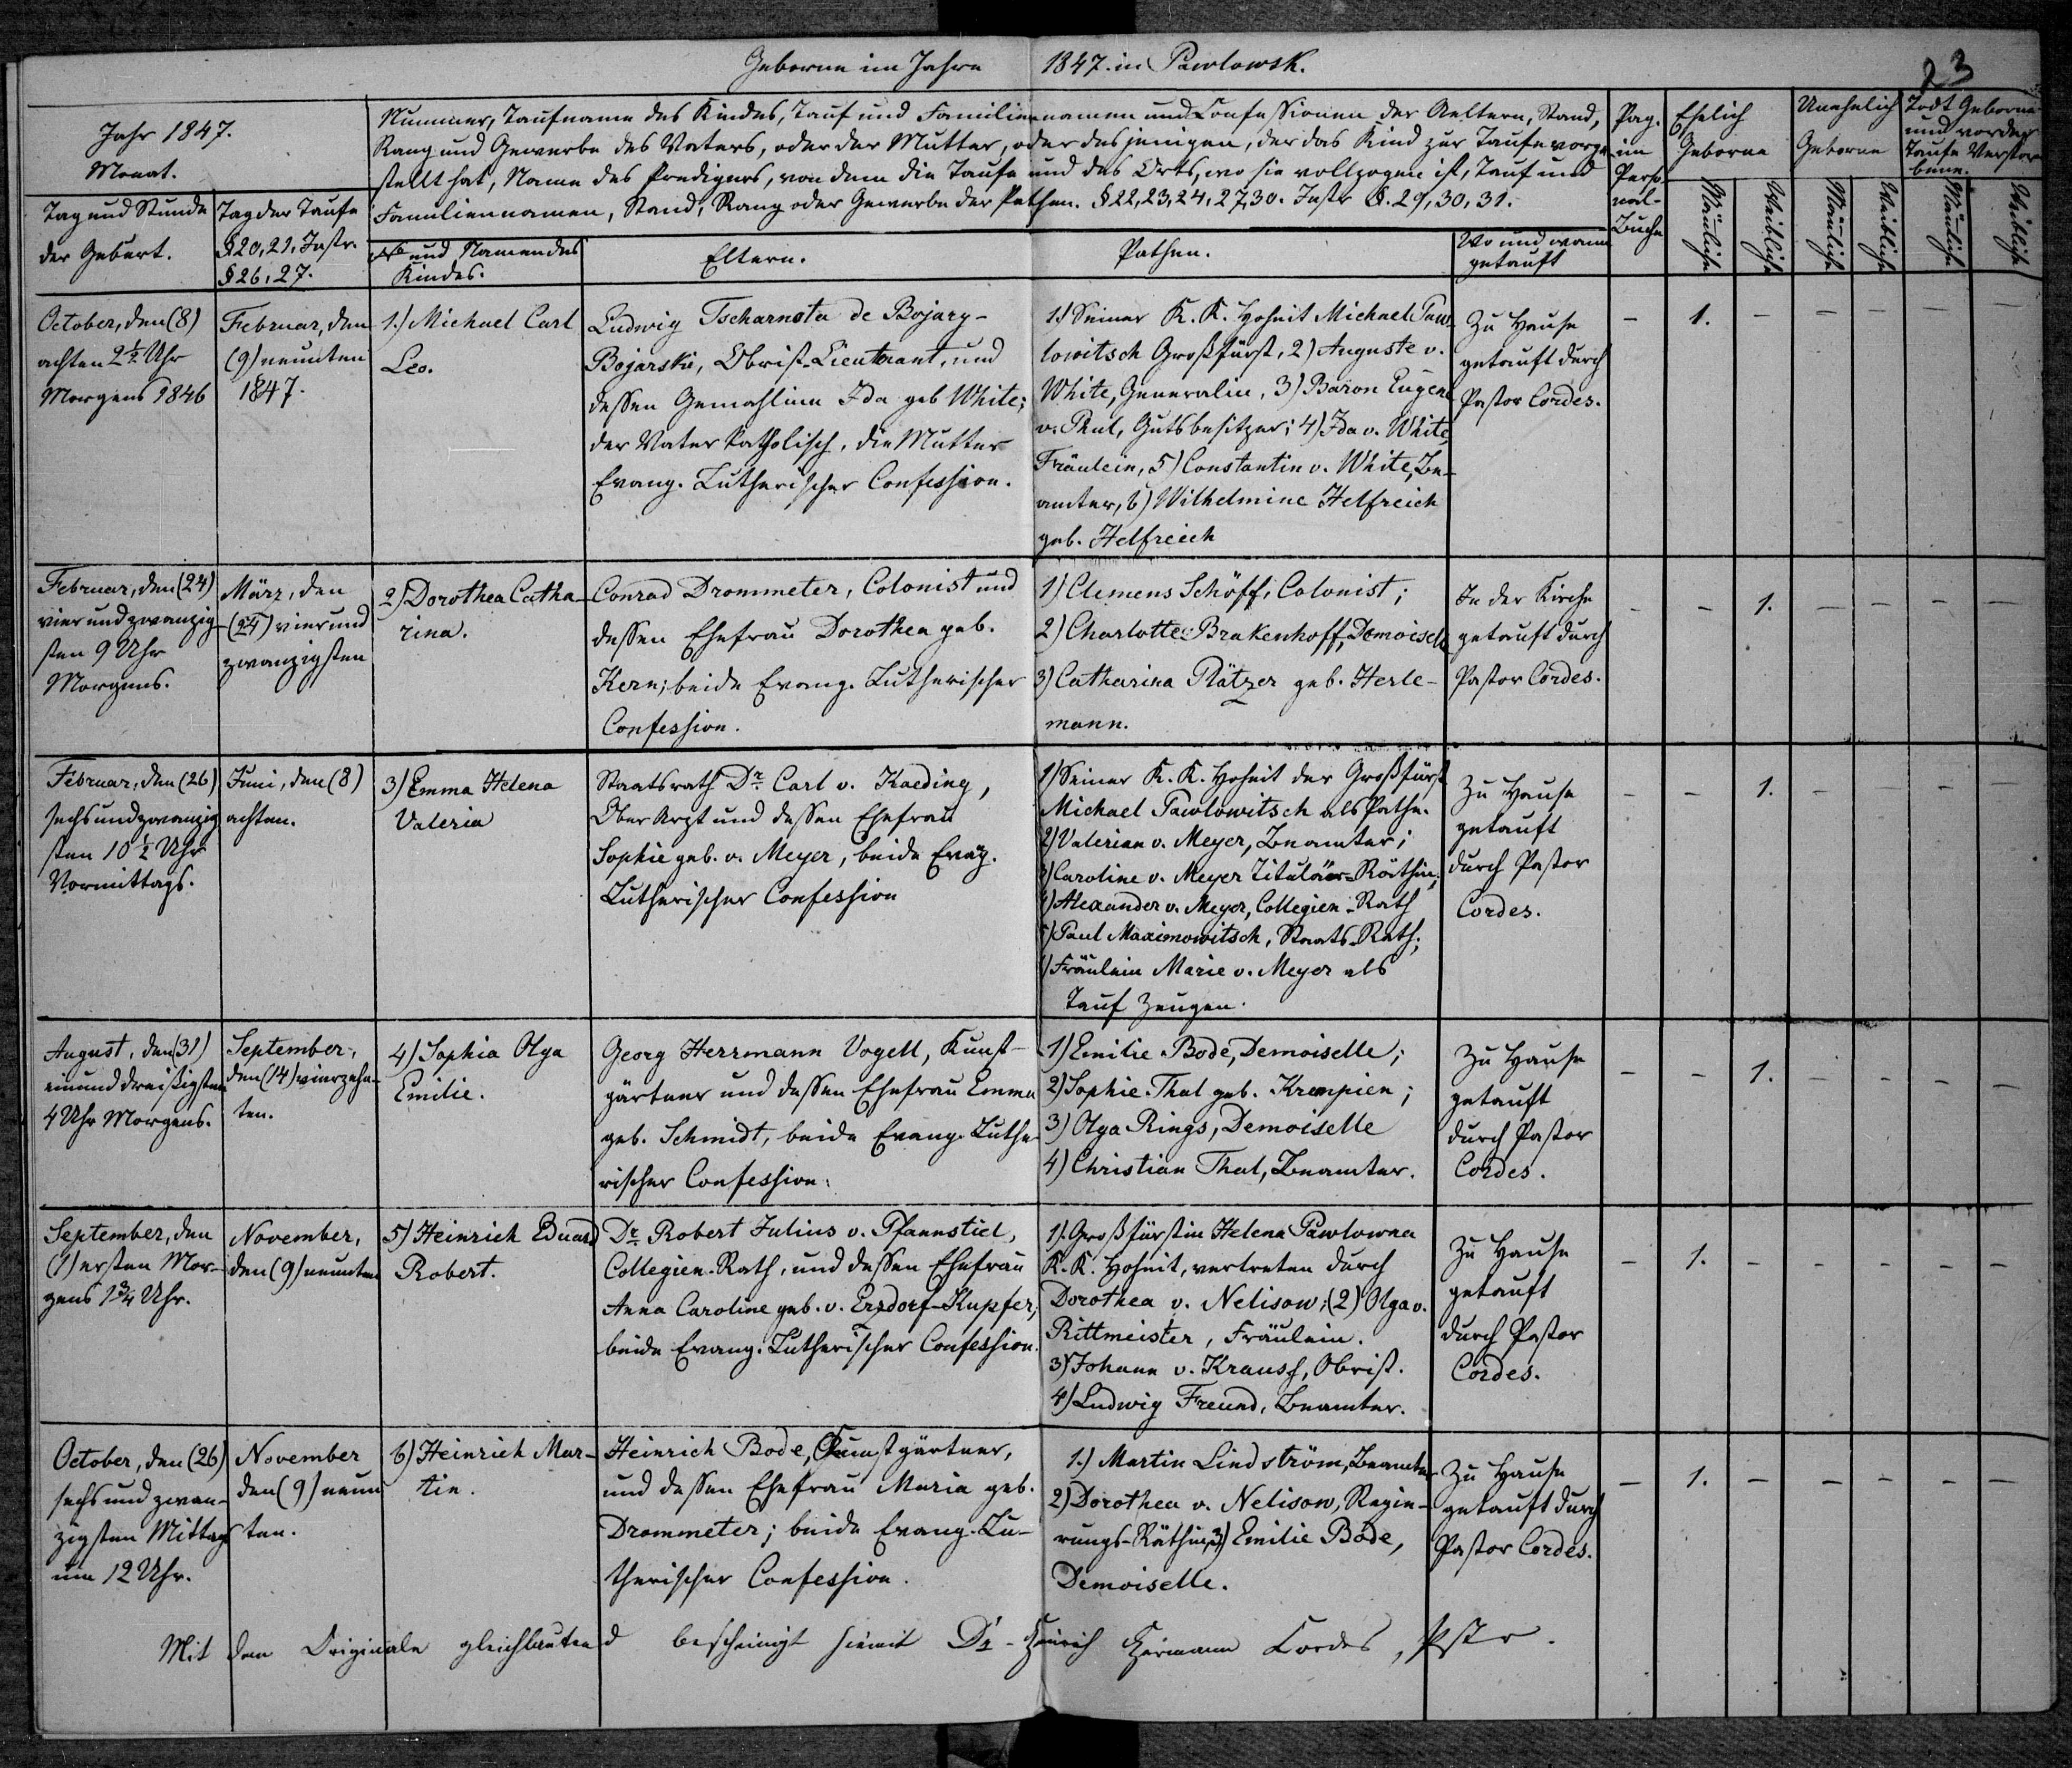 Geborne im Jahre 1847. in Pawlowsk.
23
Jahr 1847.
Monat.
Tag und Stunde
der Geburt.
Tag der Taufe
§ 20, 21, Instr.
§ 26, 27.
Nummer, Taufname des Kindes, Tauf und Familiennamen und Confessionen der Aeltern, Stand,
Rang und Gewerbe des Vaters, oder der Mutter, oder desjenigen, der das Kind zur Taufe vorge
stellt hat, Name des Predigers, von dem die Taufe und des Orts, wo sie vollzogen ist, Tauf und
Familiennamen, Stand, Rang oder Gewerbe der Pathen. § 22, 23, 24, 27, 30. Instr §. 29, 30, 31.
№ und Namen des
Kindes.
Eltern.
Pathen.
Wo und wann
getauft
Pag.
im
Perso
nal-
Buche
Ehelich
Geborne
Unehelich
Geborne
Todt Geborne
und vor der
Taufe Verstor
bene.
Mänliche
Weibliche
Mänliche
Weibliche
Mänliche
Weibliche
October, den (8)
achten 2½ Uhr
Morgens 1846
Februar, den
(9) neunten
1847.
1.) Michael Carl
Leo.
Ludwig Tscharnota de Bojary-
Bojarskie, Obrist-Lieutenant, und
dessen Gemahlinn Ida geb White;
der Vater katholisch, die Mutter
Evang. Lutherischer Confession.
1.) Seiner K. K. Hoheit Michael Paw-
lowitsch Großfürst, 2) Auguste v.
White, Generalin, 3) Baron Eugene
v. Phul, Gutsbesitzer; 4) Ida v. White,
Fräulein, 5) Constantin v. White, Be-
amter, 6) Wilhelmine Helfreich
geb. Helfreich
Zu Hause
getauft durch
Pastor Cordes.
– 1. – – – – –
Februar, den (24)
vier und zwanzig-
sten 9 Uhr
Morgens.
März, den
(24) vier und
zwanzigsten
2) Dorothea Catha-
rina.
Conrad Drommeter, Colonist und
dessen Ehefrau Dorothea geb.
Kern; beide Evang. Lutherischer
Confession.
1) Clemens Schöff, Colonist;
2) Charlotte Brakenhoff, Demoiselle
3) Catharina Plätzer geb. Herle-
mann.
In der Kirche
getauft durch
Pastor Cordes.
– – 1. – – – –
Februar, den (26)
sechs und zwanzig
sten 10½ Uhr
Vormittags.
Juni, den (8)
achten.
3) Emma Helena
Valeria
Staatsrath Dr. Carl v. Kaeding,
Ober Arzt und dessen Ehefrau
Sophie geb. v. Meyer, beide Evang.
Lutherischer Confession
1) Seiner K. K. Hoheit der Großfürst
Michael Pawlowitsch als Pathe.
2) Valerian v. Meyer, Beamter;
3) Caroline v. Meyer Titulär-Räthin;
4) Alexander v. Meyer, Collegien-Rath
5) Paul Maximowitsch, Staats-Rath;
6) Fräulein Marie v. Meyer als
Tauf Zeugen.
Zu Hause
getauft
durch Pastor
Cordes.
– – 1. – – – –
August, den (31)
ein und dreißigsten
4 Uhr Morgens.
September,
den (14) vierzehn-
ten.
4) Sophia Olga
Emilie.
Georg Herrmann Vogell, Kunst-
gärtner und dessen Ehefrau Emma
geb. Schmidt, beide Evang. Luthe-
rischer Confession.
1) Emilie Bode, Demoiselle;
2) Sophie Thal geb. Krempien;
3) Olga Rings, Demoiselle
4) Christian Thal, Beamter.
Zu Hause
getauft
durch Pastor
Cordes.
– – 1. – – – –
September, den
(1) ersten Mor-
gens 1¾ Uhr.
November,
den (9) neunten
5) Heinrich Eduard
Robert.
Dr. Robert Julius v. Pfannstiel,
Collegien-Rath, und dessen Ehefrau
Anna Caroline geb. v. Erzdorf-Kupfer;
beide Evang. Lutherischer Confession.
1). Großfürstin Helena Pawlowna
K. K. Hoheit, vertreten durch
Dorothea v. Nelisow; (2) Olga v.
Rittmeister, Fräulein.
3) Johann v. Krauss, Obrist.
4) Ludwig Freund, Beamter.
Zu Hause
getauft
durch Pastor
Cordes.
– 1. – – – – –
October, den (26)
sechs und zwan-
zigsten Mittags
um 12 Uhr.
November
den (9) neun
ten.
6) Heinrich Mar-
tin.
Heinrich Bode, Kunstgärtner,
und dessen Ehefrau Maria geb.
Drommeter; beide Evang. Lu-
therischer Confession.
1.) Martin Lindström, Beamter
2) Dorothea v. Nelisow, Regie-
rungs-Räthin, 3) Emilie Bode,
Demoiselle.
Zu Hause
getauft durch
Pastor Cordes.
– 1. – – – – –
Mit dem Originale gleichlautend bescheinigt hiemit Dr. Heinrich Hermann Cordes, Pstr.